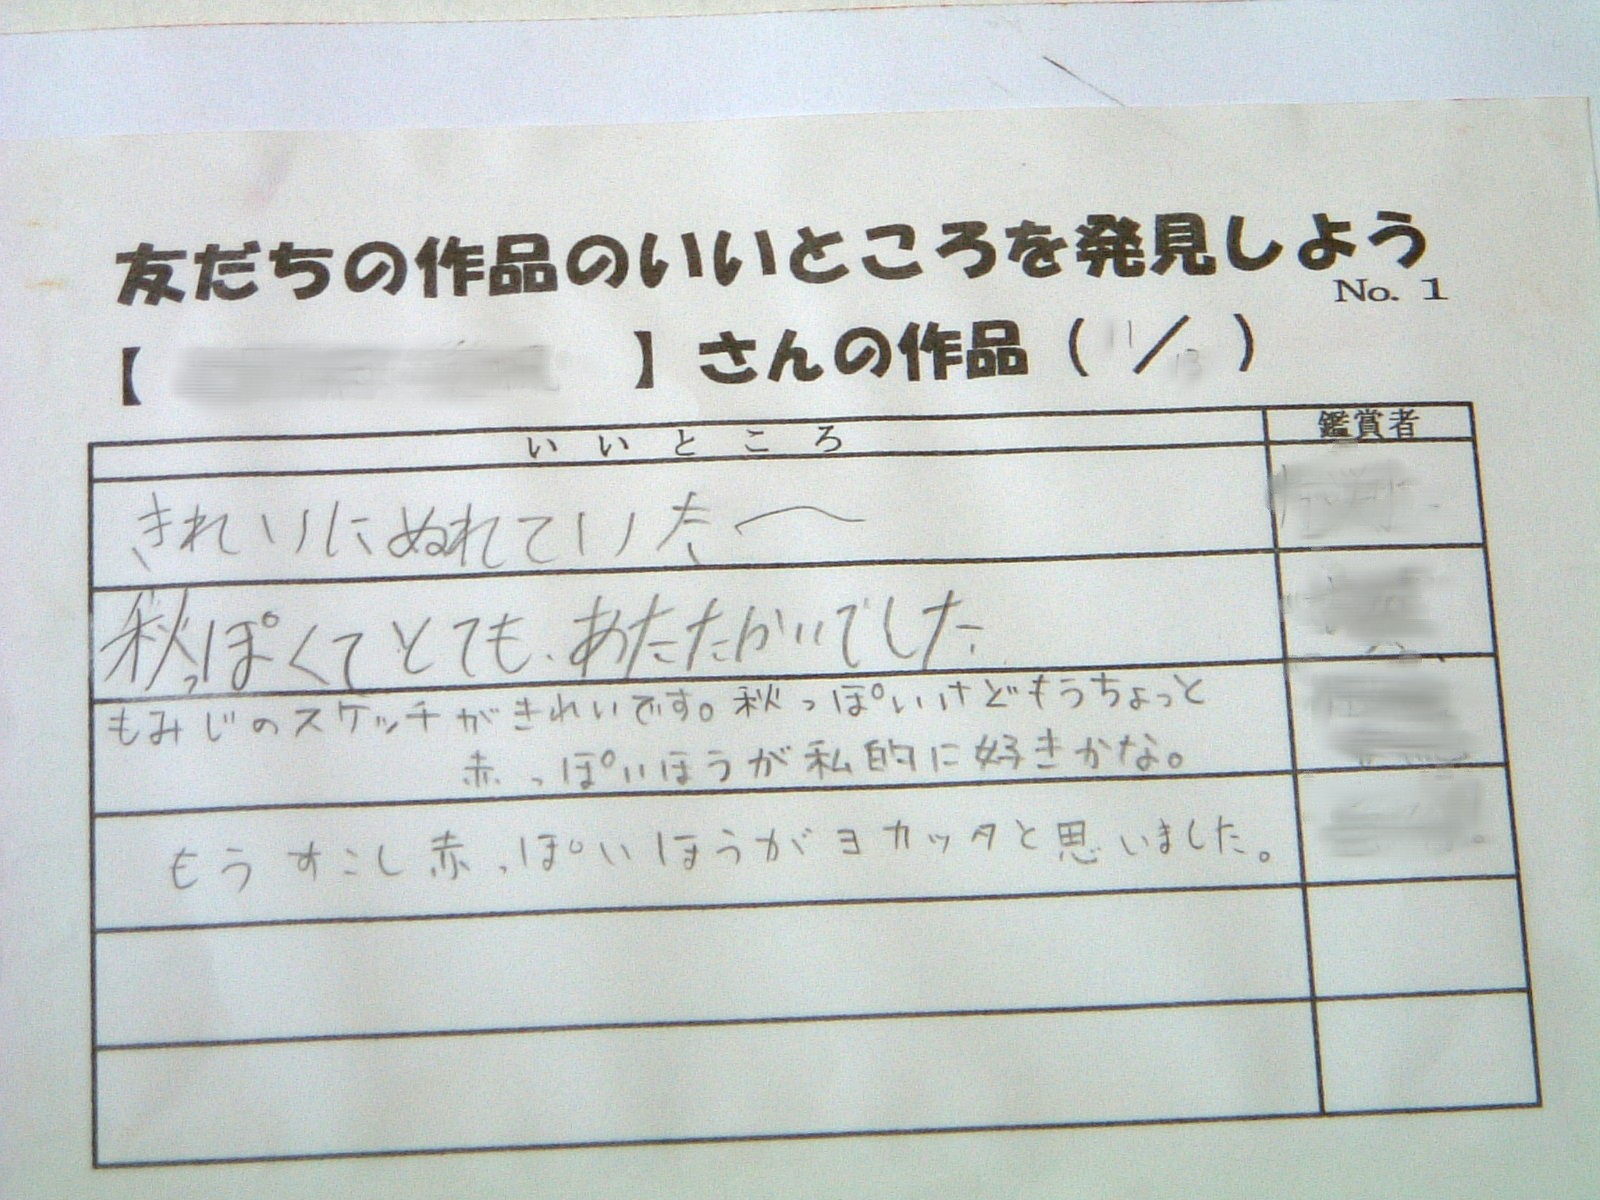 友だちの作品のいいところを発見しよう
No. 1
【 】さんの作品( 11/13 )
いいところ 鑑賞者
きれいにぬれていた〜
秋っぽくてとても、あたたかいでした
もみじのスケッチがきれいです。秋っぽいけどもうちょっと
赤っぽいほうが私的に好きかな。
もうすこし赤っぽいほうがヨカッタと思いました。